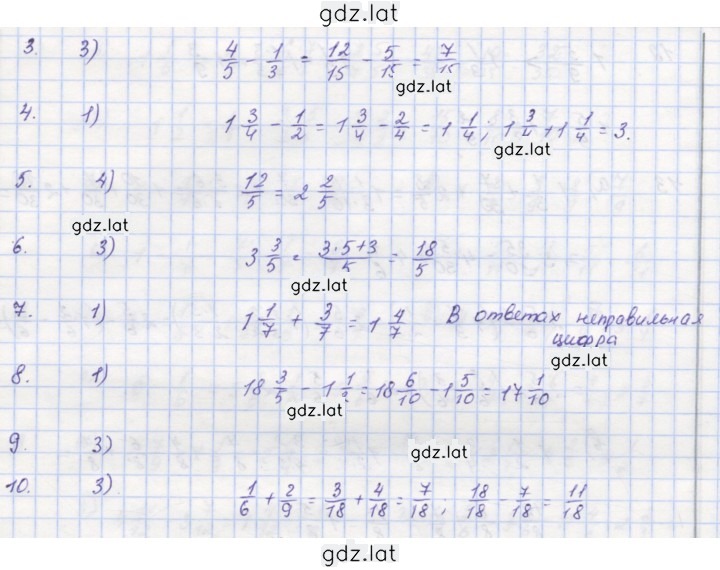 gdz.lat
3. 3) 4/5 - 1/3 = 12/15 - 5/15 = 7/15
gdz.lat
4. 1) 1 3/4 - 1/2 = 1 3/4 - 2/4 = 1 1/4; 1 3/4 + 1 1/4 = 3.
gdz.lat
5. 4) 12/5 = 2 2/5
gdz.lat
6. 3) 3 3/5 = (3·5+3)/5 = 18/5
gdz.lat
7. 1) 1 1/7 + 3/7 = 1 4/7 В ответах неправильная
цифра
gdz.lat
8. 1) 18 3/5 - 1 1/2 = 18 6/10 - 1 5/10 = 17 1/10
gdz.lat
9. 3)
gdz.lat
10. 3) 1/6 + 2/9 = 3/18 + 4/18 = 7/18; 18/18 - 7/18 = 11/18
gdz.lat